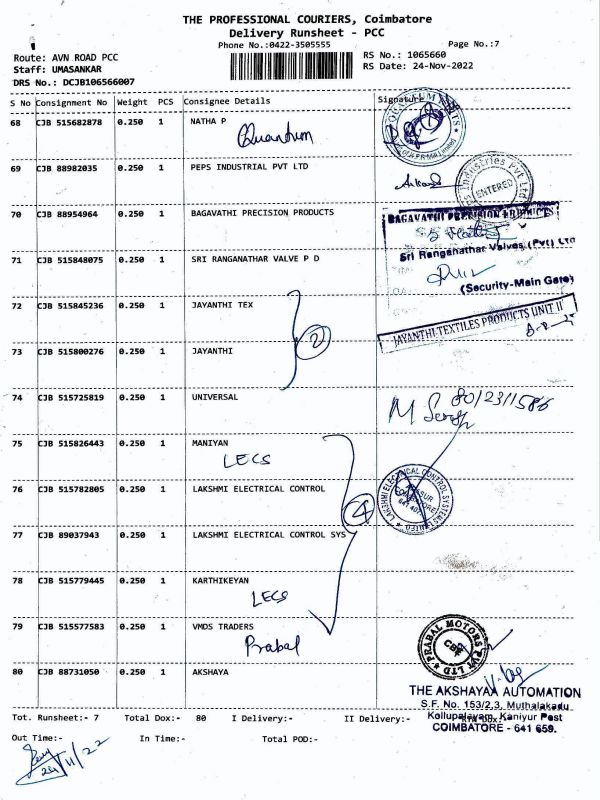 THE PROFESSIONAL COURIERS, Coimbatore
Delivery Runsheet - PCC
Phone No.:0422-3505555
Page No.:7
Route: AVN ROAD PCC
RS No.: 1065660
Staff: UMASANKAR
RS Date: 24-Nov-2022
DRS No.: DCJB106566007
S No Consignment No Weight PCS Consignee Details Signature
68 CJB 515682878 0.250 1 NATHA P
Quantum
69 CJB 88982035 0.250 1 PEPS INDUSTRIAL PVT LTD
Industries Pvt Ltd
ENTERED
70 CJB 88954964 0.250 1 BAGAVATHI PRECISION PRODUCTS
BAGAVATHI PRECISION PRODUCTS
71 CJB 515848075 0.250 1 SRI RANGANATHAR VALVE P D
Sri Ranganathar Valves (Pvt) Ltd
(Security-Main Gate)
72 CJB 515845236 0.250 1 JAYANTHI TEX
2
JAYANTHI TEXTILES PRODUCTS UNIT II
73 CJB 515800276 0.250 1 JAYANTHI
74 CJB 515725819 0.250 1 UNIVERSAL
8012311586
75 CJB 515826443 0.250 1 MANIYAN
LECS
76 CJB 515782805 0.250 1 LAKSHMI ELECTRICAL CONTROL
4
LAKSHMI ELECTRICAL CONTROL SYSTEMS LIMITED
77 CJB 89037943 0.250 1 LAKSHMI ELECTRICAL CONTROL SYS
78 CJB 515779445 0.250 1 KARTHIKEYAN
LECS
79 CJB 515577583 0.250 1 VMDS TRADERS
Prabal
PRABAL MOTORS PVT LTD
CBE
80 CJB 88731050 0.250 1 AKSHAYA
THE AKSHAYAA AUTOMATION
S.F. No. 153/2,3, Muthalakadu
Kollupalayam, Kaniyur Post
COIMBATORE - 641 659.
Tot. Runsheet:- 7 Total Dox:- 80 I Delivery:- II Delivery:-
Out Time:- In Time:- Total POD:-
24/11/22